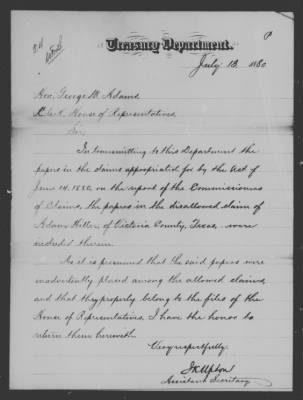 Treasury Department.
July 13, 1880
Hon. George M. Adams
Clerk, House of Representatives
Sir:
In transmitting to this Department the
papers in the claims appropriated for by the Act of
June 14, 1880, on the report of the Commissioners
of Claims, the papers in the disallowed claim of
Adam Hiller, of Victoria County, Texas, were
included therein.
As it is presumed that the said papers were
inadvertently placed among the allowed claims,
and that they properly belong to the files of the
House of Representatives, I have the honor to
return them herewith.
Very respectfully,
J K Upton
Assistant Secretary